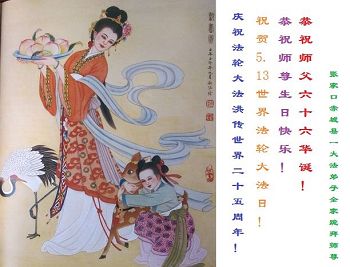 庆祝法轮大法洪传世界二十五周年！
祝贺5.13世界法轮大法日！
恭祝师尊生日快乐！
恭祝师父六十六华诞！
张家口赤城县一大法弟子全家跪拜师尊